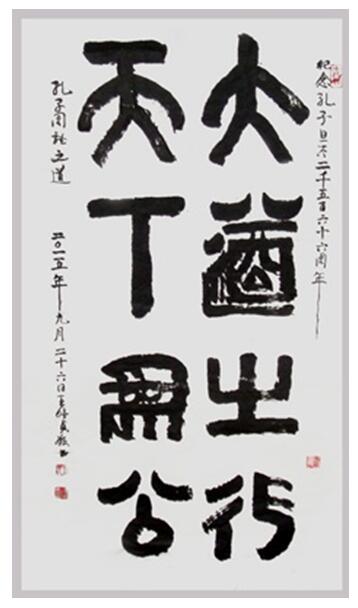 纪念孔子旦辰二千五百六十六周年
大道之行
天下為公
孔子之道
二〇一五年九月二十六日王书